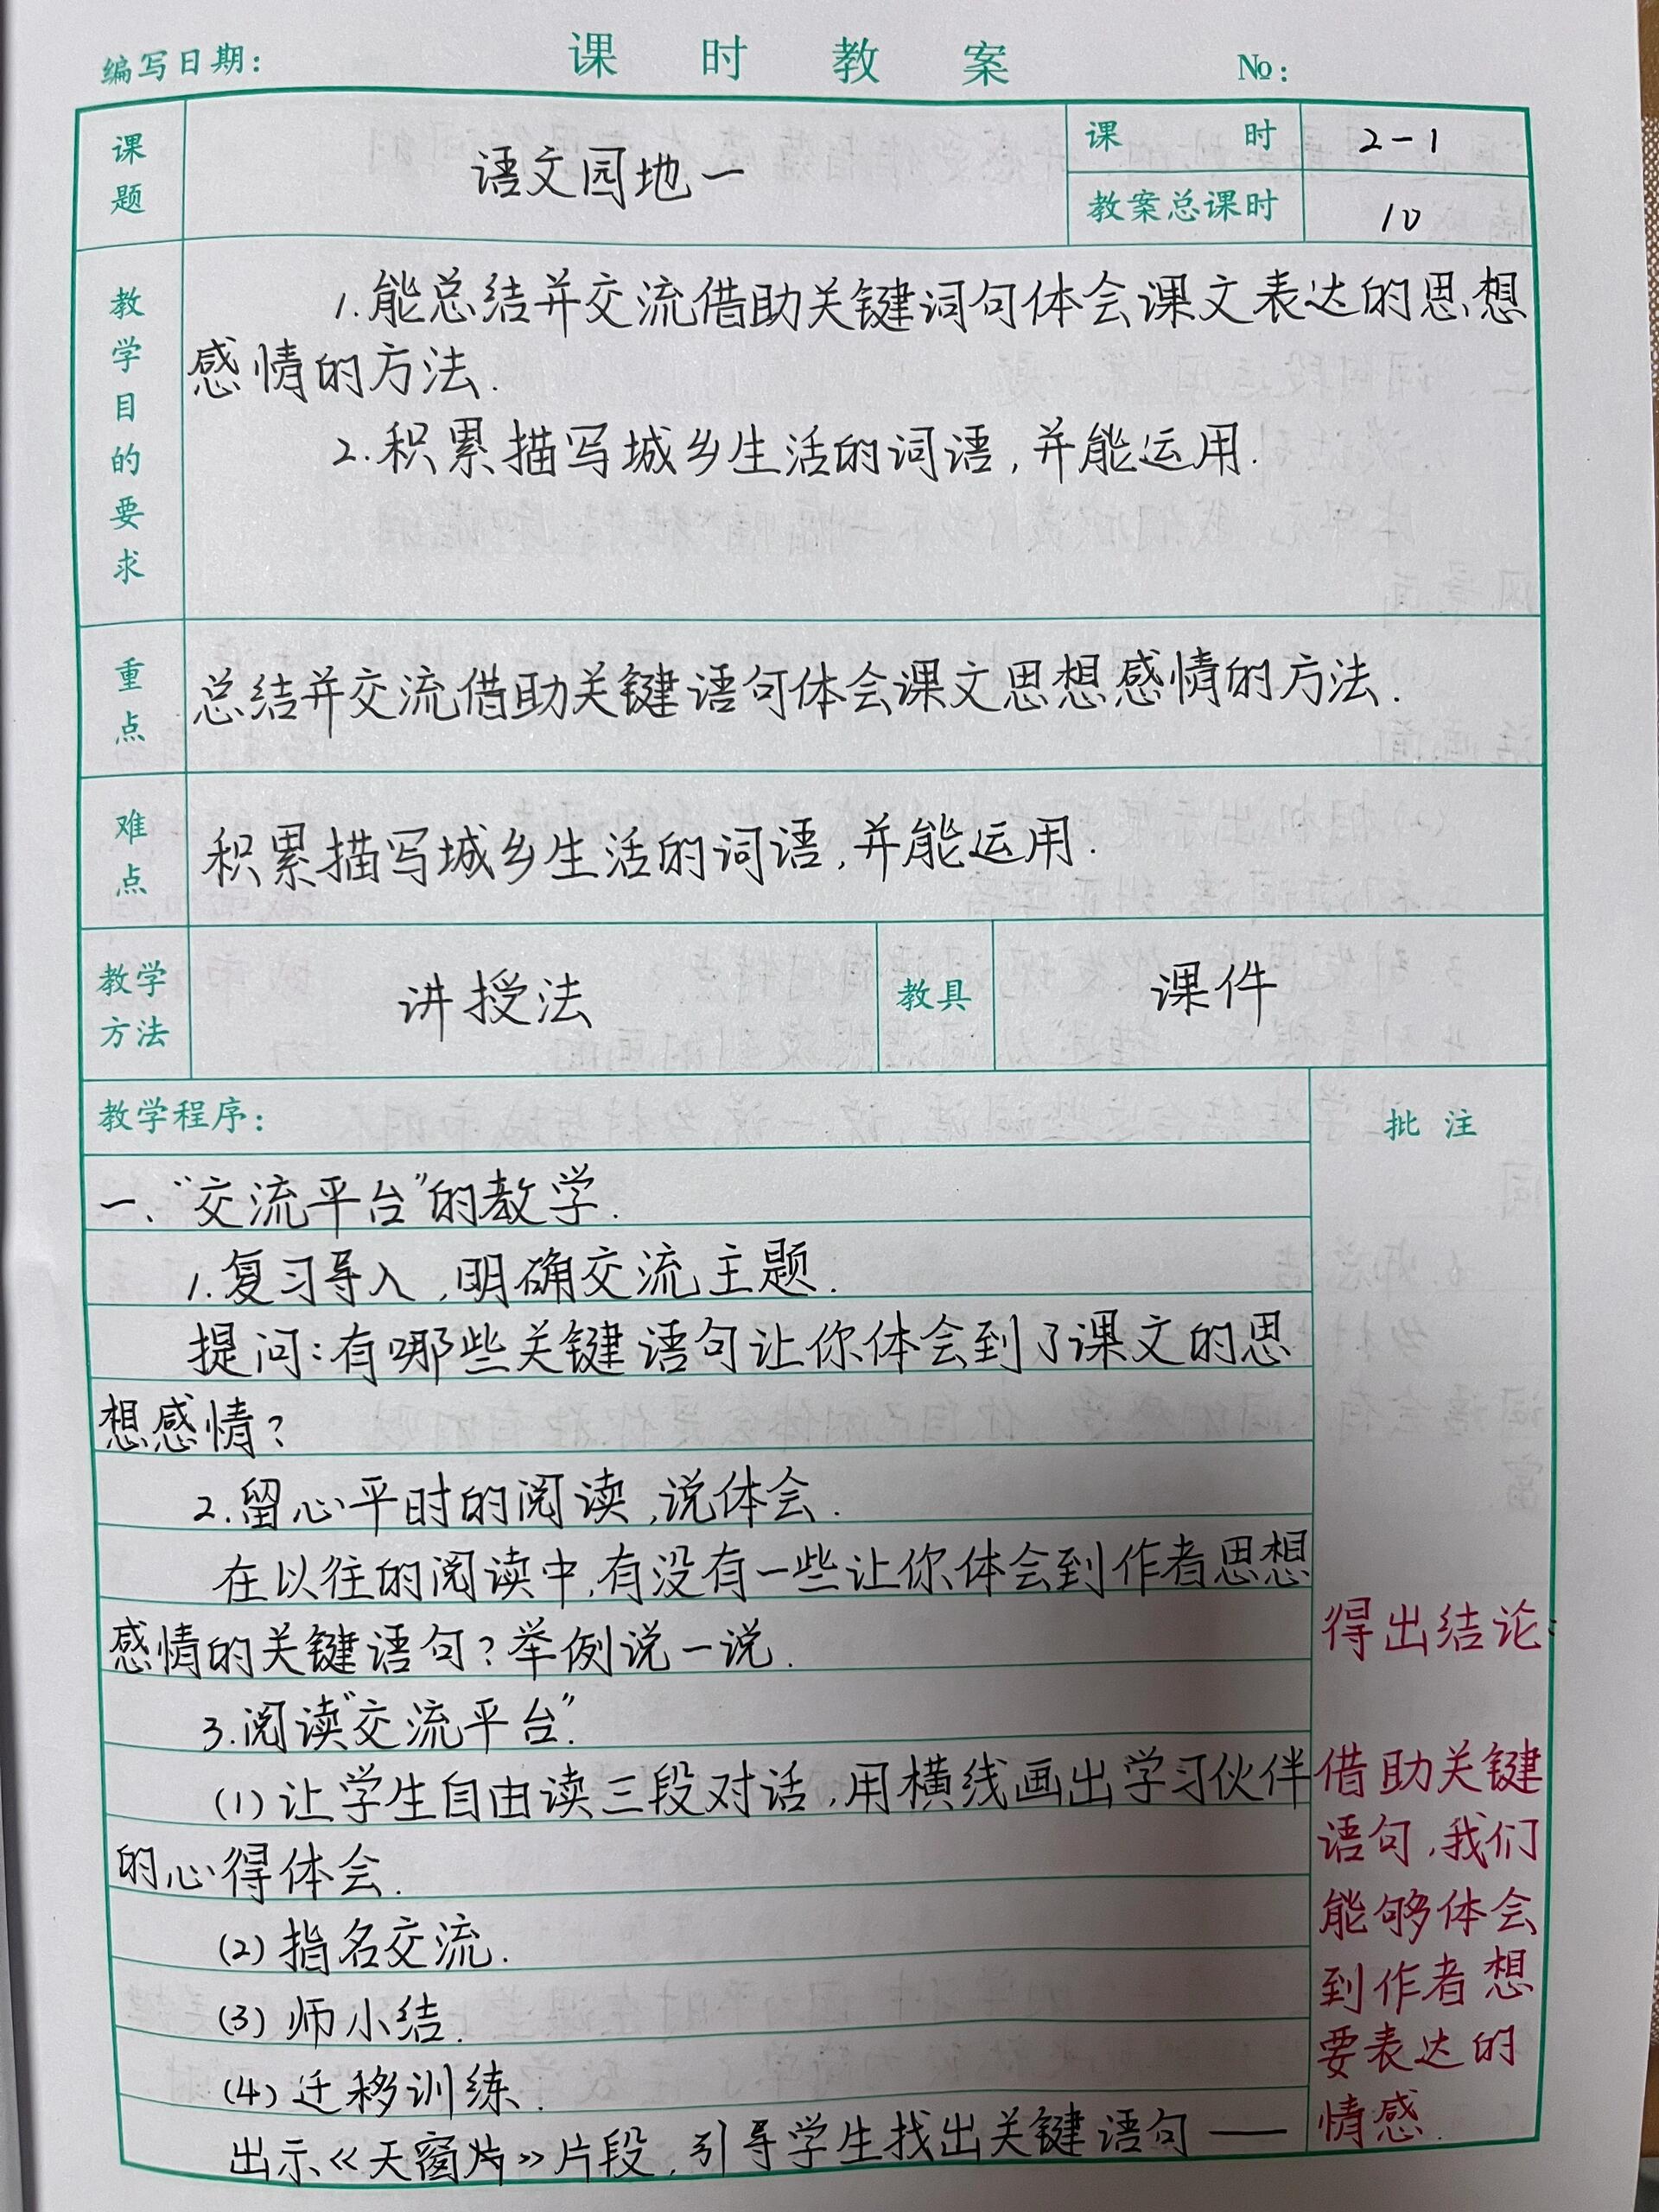 编写日期：
课时教案
No：
课题
语文园地一
课时
2-1
教案总课时
10
教学目的要求
1.能总结并交流借助关键词句体会课文表达的思想
感情的方法.
2.积累描写城乡生活的词语,并能运用.
重点
总结并交流借助关键语句体会课文思想感情的方法.
难点
积累描写城乡生活的词语,并能运用.
教学方法
讲授法
教具
课件
教学程序：
批注
一、“交流平台”的教学.
1.复习导入,明确交流主题.
提问:有哪些关键语句让你体会到了课文的思
想感情?
2.留心平时的阅读,说体会.
在以往的阅读中,有没有一些让你体会到作者思想
感情的关键语句?举例说一说.
3.阅读“交流平台”.
(1)让学生自由读三段对话,用横线画出学习伙伴
的心得体会.
(2)指名交流.
(3)师小结.
(4)迁移训练.
出示《天窗》片段,引导学生找出关键语句——
得出结论:
借助关键
语句,我们
能够体会
到作者想
要表达的
情感.